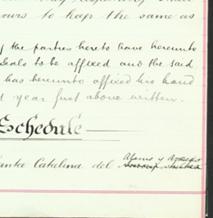 ours to keep the same as
of the parties hereto have hereunto
Seals to be affixed and the said
has hereunto affixed his hand
year first above written.
Schedule
Santa Catalina del Alamo y